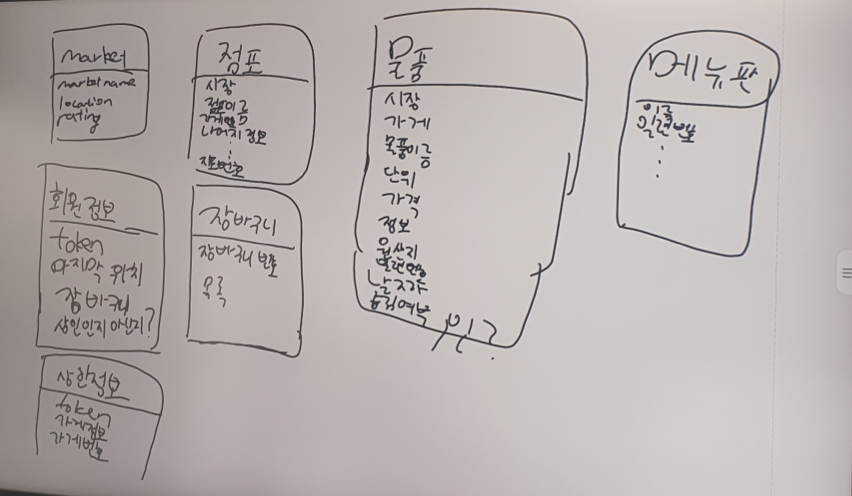 market
market name
location
rating
점포
시장
점포이름
나머지 정보
물품
시장
가게
물품이름
단위
가격
정보
원산지
일련번호
날짜
흥정여부
메뉴판
이름
일련번호
회원정보
token
마지막 위치
장바구니
상인인지 아닌지?
장바구니
장바구니 번호
목록
상한정보
token
가게정보
가게번호